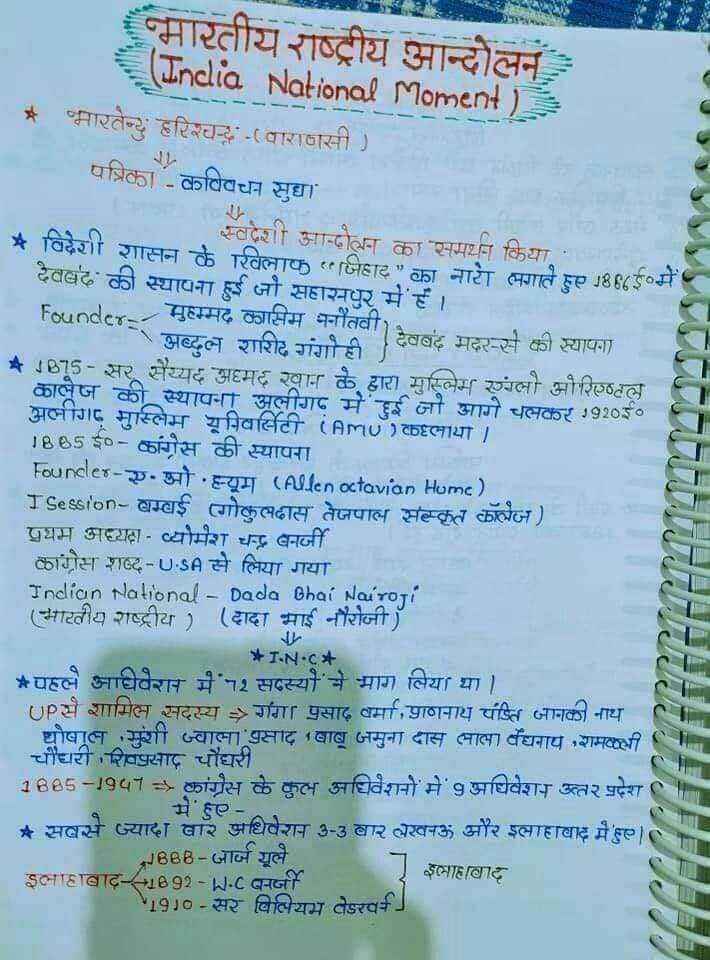 भारतीय राष्ट्रीय आन्दोलन
(India National Moment)
★ भारतेन्दु हरिश्चन्द्र - (वाराणसी)
पत्रिका - कविवचन सुधा
स्वदेशी आन्दोलन का समर्थन किया
★ विदेशी शासन के खिलाफ "जिहाद" का नारा लगाते हुए 1866ई० में
देवबंद की स्थापना हुई जो सहारनपुर में है ।
Founder= मुहम्मद कासिम ननौतवी
अब्दुल राशिद गंगोही } देवबंद मदर-से की स्थापना
★ 1875 - सर सैय्यद अहमद खान के द्वारा मुस्लिम एंग्लो ओरिएण्टल
कालेज की स्थापना अलीगढ़ में हुई जो आगे चलकर 1920ई०
अलीगढ़ मुस्लिम यूनिवर्सिटी (AMU) कहलाया ।
1885 ई० - कांग्रेस की स्थापना
Founder - ए. ओ. ह्यूम (Allen octavian Hume)
I Session - बम्बई (गोकुलदास तेजपाल संस्कृत कॉलेज)
प्रथम अध्यक्ष - व्योमेश चन्द्र बनर्जी
कांग्रेस शब्द - U.SA से लिया गया
Indian National - Dada Bhai Nairoji
(भारतीय राष्ट्रीय) (दादा भाई नौरोजी)
★ I.N.C ★
★ पहले अधिवेशन में 72 सदस्यों ने भाग लिया था ।
UP से शामिल सदस्य ⇒ गंगा प्रसाद वर्मा, प्राणनाथ पंडित जानकी नाथ
घोषाल, मुंशी ज्वाला प्रसाद, बाबू जमुना दास लाला बैघनाथ, रामकली
चौधरी, शिवप्रसाद चौधरी
1885-1947 ⇒ कांग्रेस के कुल अधिवेशनों में 9 अधिवेशन उत्तर प्रदेश
में हुए -
★ सबसे ज्यादा बार अधिवेशन 3-3 बार लखनऊ और इलाहाबाद में हुए।
1888 - जार्ज यूले
इलाहाबाद 1892 - W.C बनर्जी } इलाहाबाद
1910 - सर विलियम वेडरवर्न